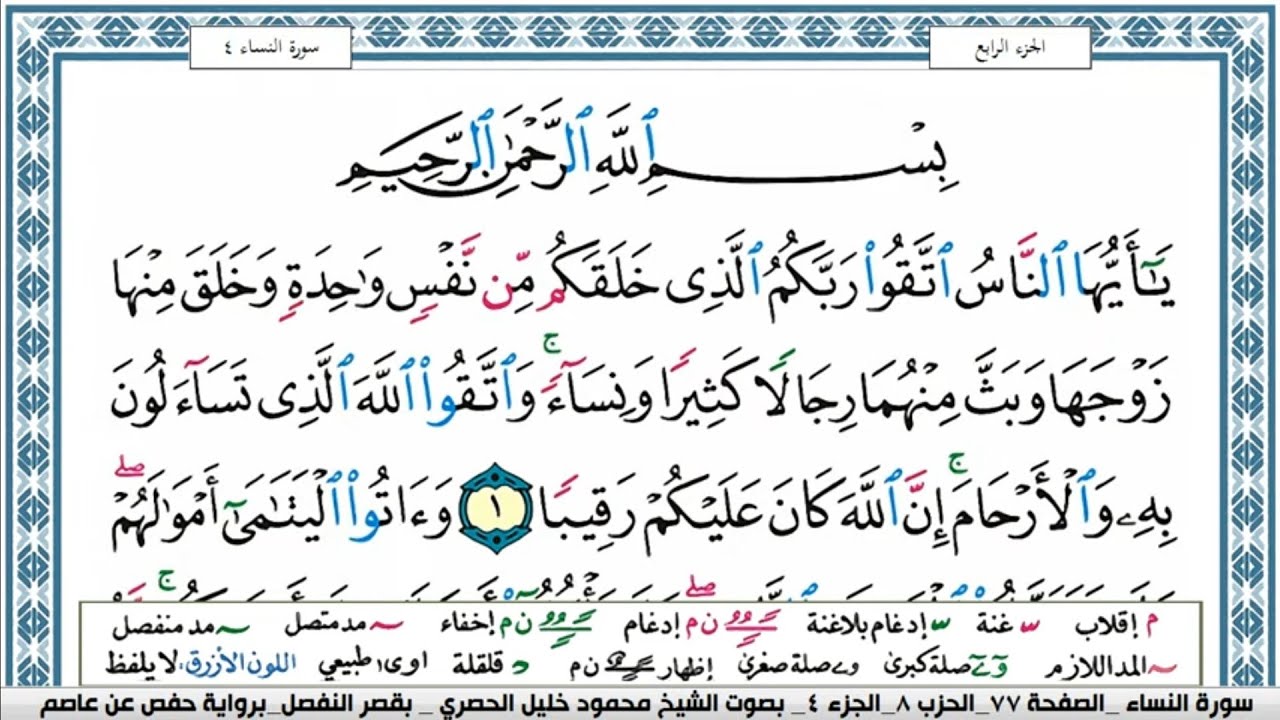 الجزء الرابع
سورة النساء ٤
بِسْمِ ٱللَّهِ ٱلرَّحْمَٰنِ ٱلرَّحِيمِ
يَٰٓأَيُّهَا ٱلنَّاسُ ٱتَّقُوا۟ رَبَّكُمُ ٱلَّذِى خَلَقَكُم مِّن نَّفْسٍ وَٰحِدَةٍ وَخَلَقَ مِنْهَا
زَوْجَهَا وَبَثَّ مِنْهُمَا رِجَالًا كَثِيرًا وَنِسَآءً ۚ وَٱتَّقُوا۟ ٱللَّهَ ٱلَّذِى تَسَآءَلُونَ
بِهِۦ وَٱلْأَرْحَامَ ۚ إِنَّ ٱللَّهَ كَانَ عَلَيْكُمْ رَقِيبًا ١ وَءَاتُوا۟ ٱلْيَتَٰمَىٰٓ أَمْوَٰلَهُمْ ۖ
م إقلاب ـس غنة ـس إدغام بلاغنة ن م إدغام ن م إخفاء ~ مد متصل ~ مد منفصل
~ المد اللازم و ے صلة كبرى و ے صلة صغرى إظهار ن م د قلقلة اوى ١ طبيعي اللون الأزرق: لا يلفظ
سورة النساء _الصفحة ٧٧_الحزب ٨_الجزء ٤_ بصوت الشيخ محمود خليل الحصري _ بقصر النفصل_برواية حفص عن عاصم